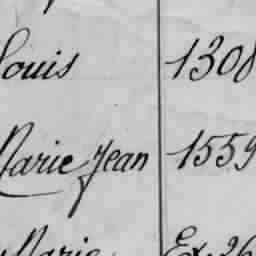 Louis 1308
Marie Jean 1559
Marie Ex. 26